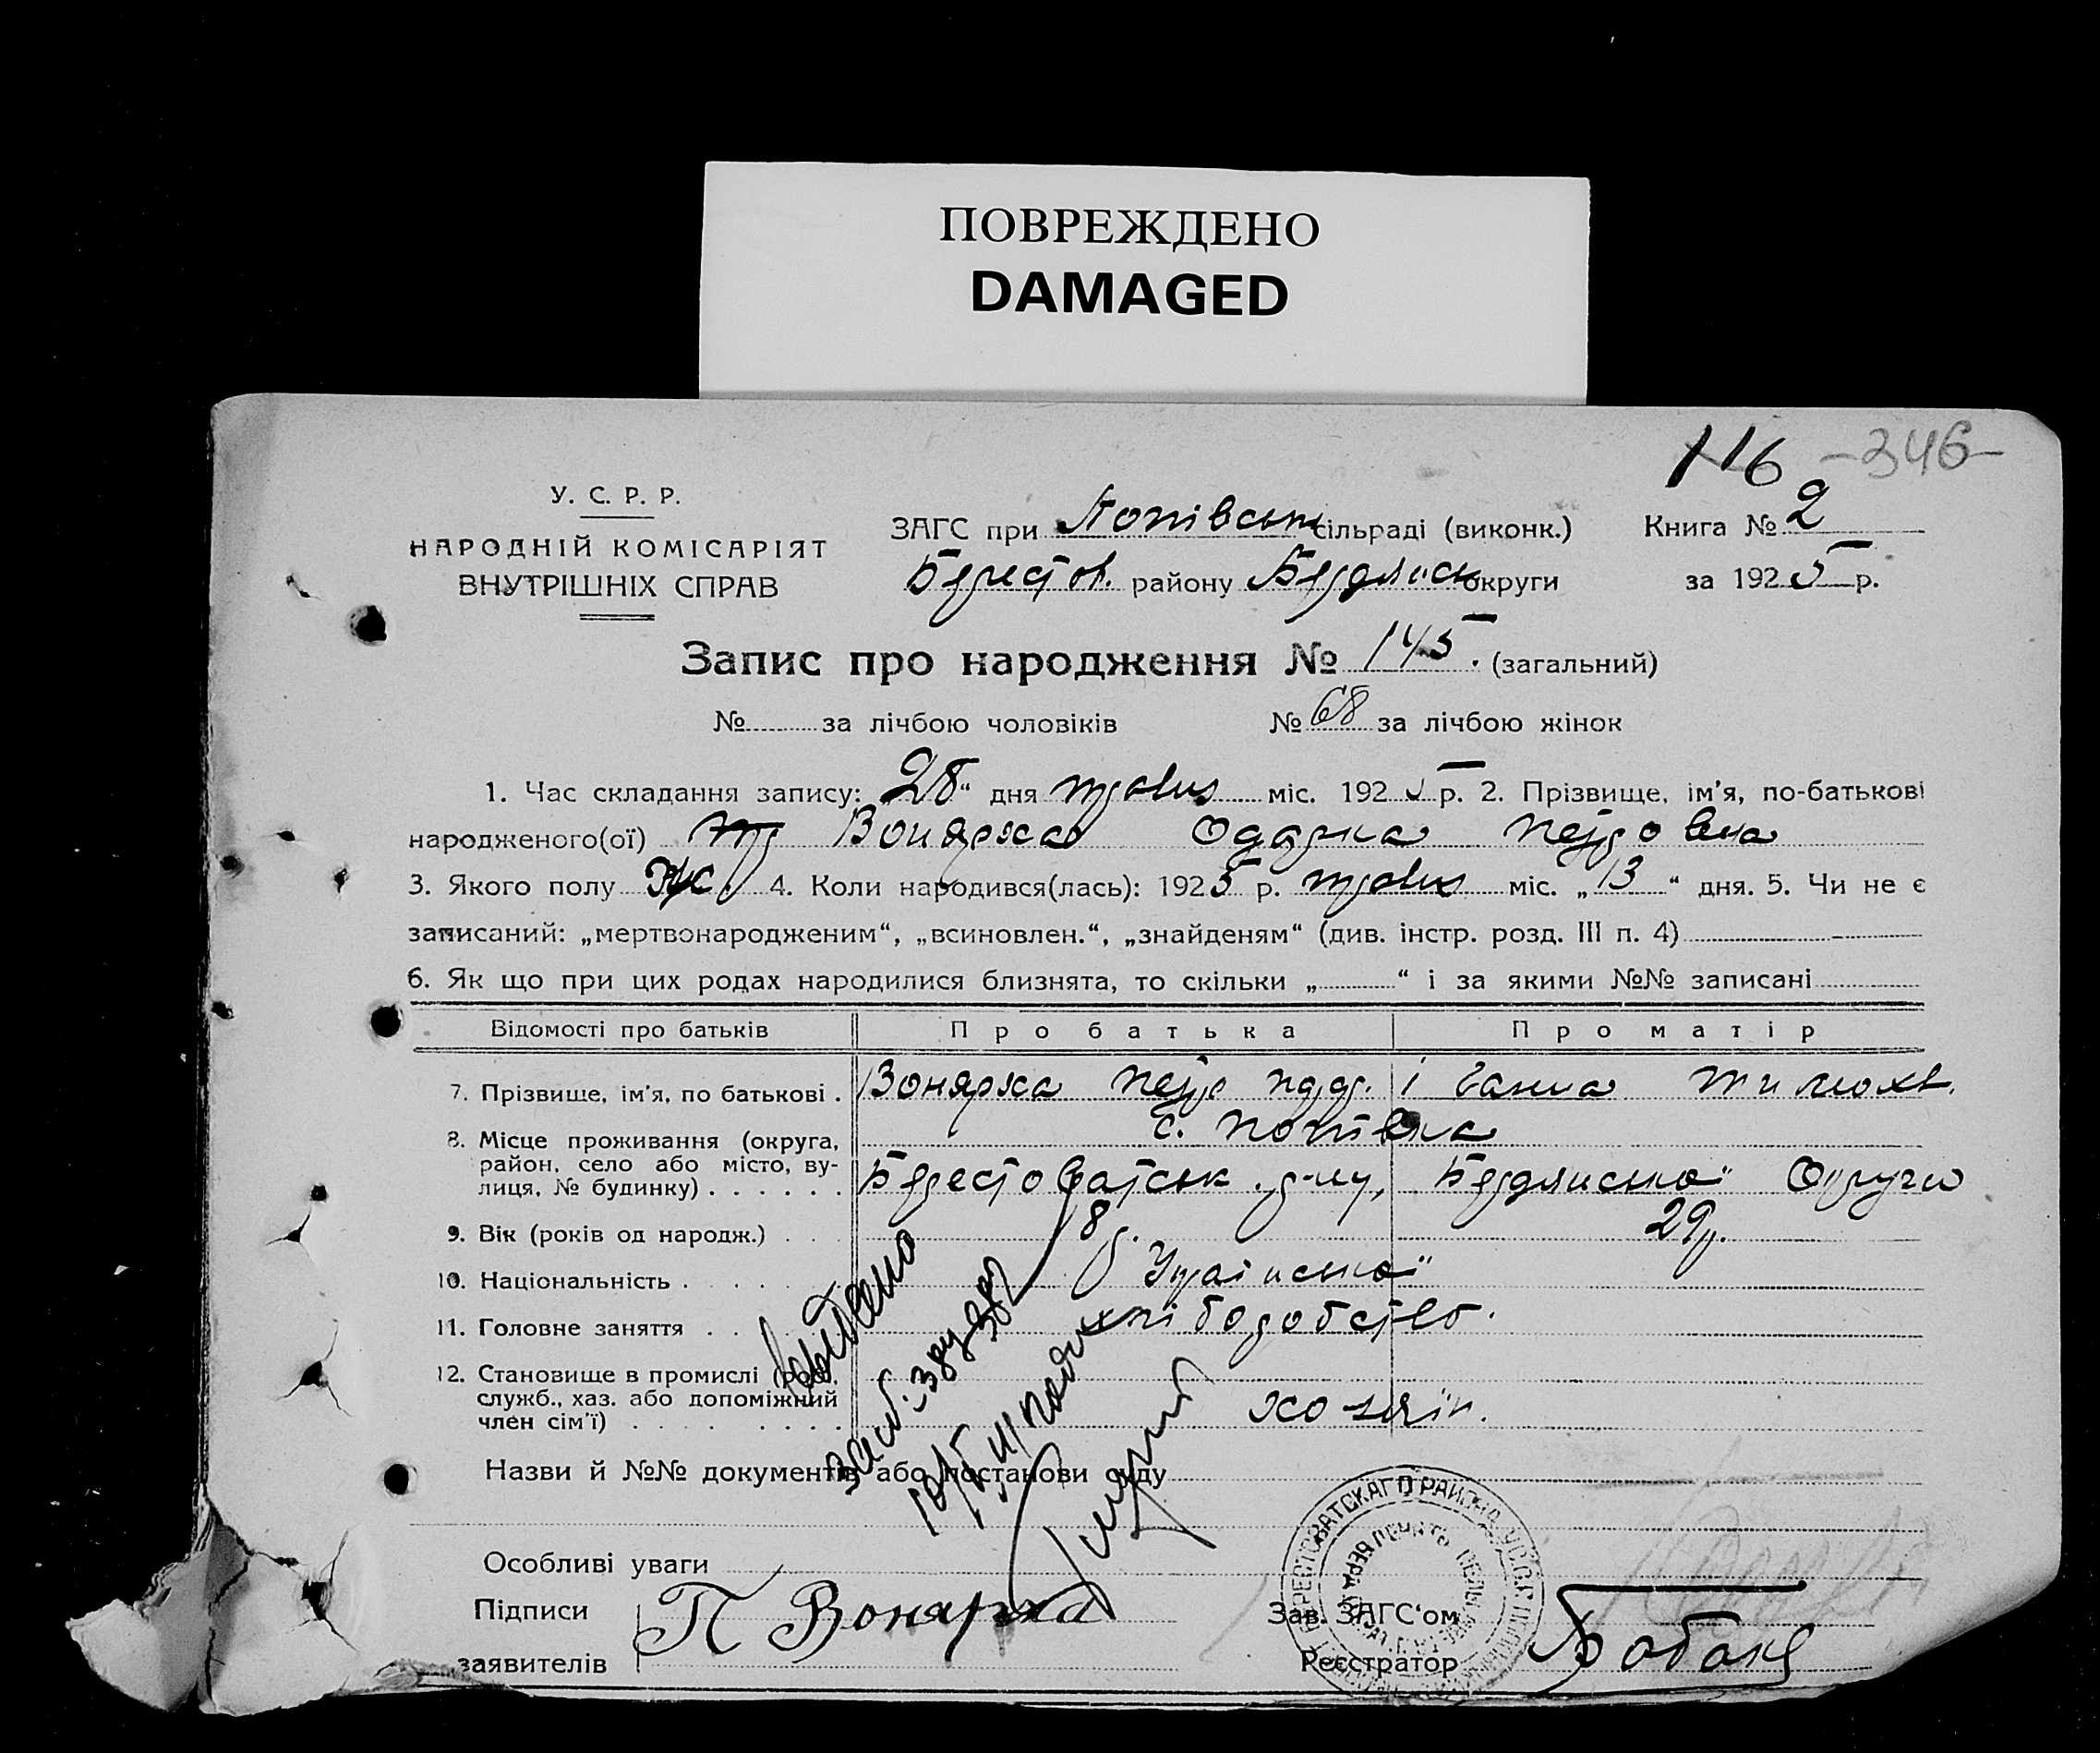 ПОВРЕЖДЕНО
DAMAGED
116 -346-
У. С. Р. Р.
НАРОДНІЙ КОМІСАРІЯТ
ВНУТРІШНІХ СПРАВ
ЗАГС при Попівськ сільраді (виконк.) Книга № 2
Берестов. району Бердянськ округи за 1925 р.
Запис про народження № 145. (загальний)
№ за лічбою чоловіків № 68 за лічбою жінок
1. Час складання запису: 28" дня міс. 1925 р. 2. Прізвище, ім'я, по-батькові
народженого(ої) Вонярха Одарка Петровна
3. Якого полу Жс. 4. Коли народився(лась): 1925 р. міс. „13" дня. 5. Чи не є
записаний: „мертвонародженим", „всиновлен.", „знайденям" (див. інстр. розд. III п. 4)
6. Як що при цих родах народилися близнята, то скільки „ " і за якими №№ записані
Відомості про батьків Про батька Про матір
7. Прізвище, ім'я, по батькові . Вонярха Петро і Ганна Тимохв.
8. Місце проживання (округа, с. Попівка
район, село або місто, ву-
лиця, № будинку) . . . . . . Берестоватськ. р-ну, Бердянської Округи
9. Вік (років од народж.) . . . 29р.
10. Національність . Української
11. Головне заняття . . хліборобство.
12. Становище в промислі (роб.,
служб., хаз. або допоміжний
член сім'ї) хозяїн.
Назви й №№ документів або постанови суду
Особливі уваги
Підписи П Вонярха Зав. ЗАГС'ом
заявителів Реєстратор Бабак